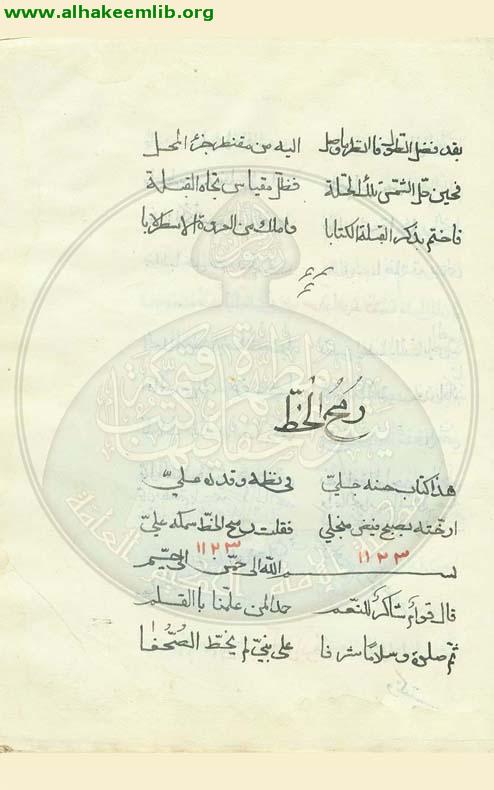 www.alhakeemlib.org
بقدر فضل الطول فالطريا وصل اليه من مقنطر جزء المحل
فحين حل الشمس تلك الحلة فظل مقياس تجاه القبلة
فاختم بذكر القبلة الكتابا واملك من الاسطرلابا
رمح الخط
هذا كتاب حسنه جلي في نظمه وقدره علي
ارخته بصبح فيض منجلي فقلت رمح الخط سمكه علي
١١٢٣ ١١٢٣
بسم الله الرحمن الرحيم
قال قوام شاكر للنعم حمدا لمن علمنا بالقلم
ثم صلوة وسلاما شرفا على نبي لم يخط الصحفا